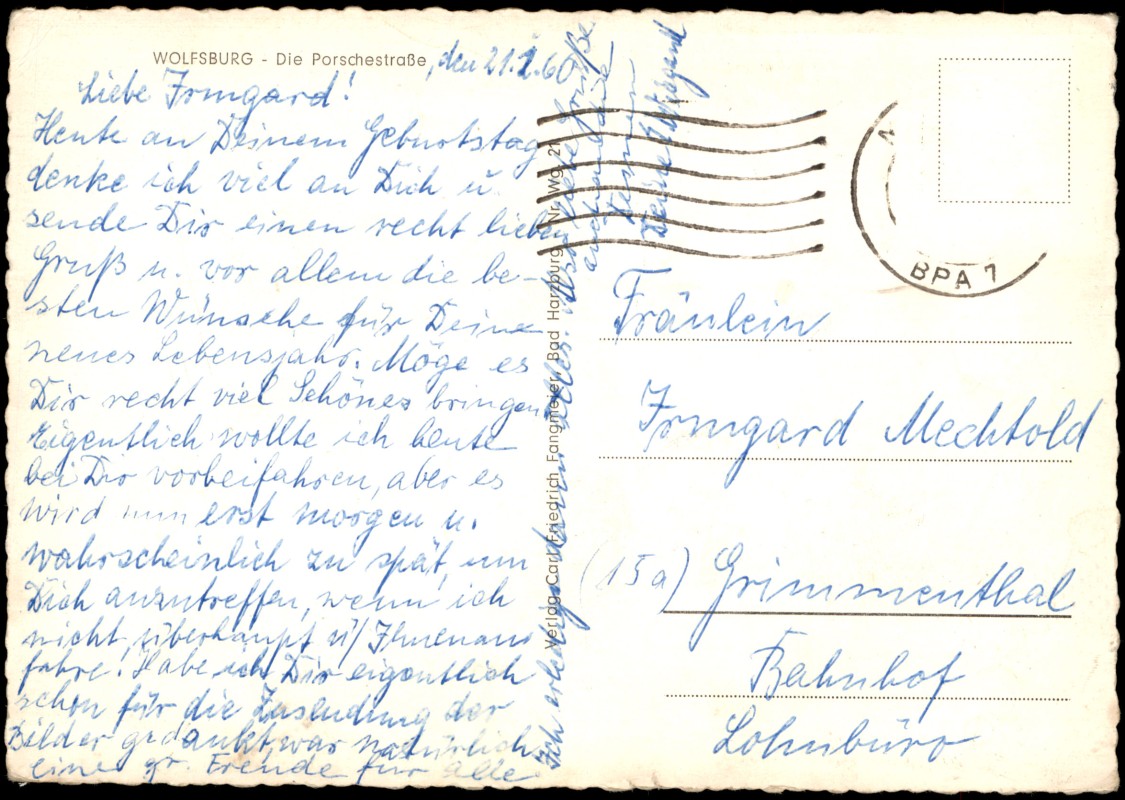 WOLFSBURG - Die Porschestraße, den 21.2.60
Liebe Irmgard!
Heute an Deinem Geburtstag
denke ich viel an Dich u.
sende Dir einen recht lieben
Gruß u. vor allem die be-
sten Wünsche für Deine
neues Lebensjahr. Möge es
Dir recht viel Schönes bringen
Eigentlich wollte ich heute
bei Dir vorbeifahren, aber es
wird nun erst morgen u.
wahrscheinlich zu spät, um
Dich anzutreffen, wenn ich
nicht überhaupt ü/ Ilmenau
fahre! Habe ich Dir eigentlich
schon für die Zusendung der
Bilder gedankt, war natürlich
eine gr. Freude für alle
Ich erledige dann alles. Also liebe Grüße
auch
Deine
Verlag Carl Friedrich Fangmeier, Bad Harzburg Nr. Wg. 21
BPA 1
Fräulein
Irmgard Mechtold
(15a) Grimmenthal
Bahnhof
Lohnbüro